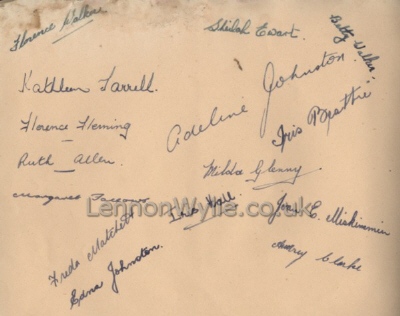 Florence Walker
Sheilah Ewart.
Betty Walker.
Kathleen Farrell.
Adeline Johnston.
Florence Fleming
Iris Beattie
Ruth Allen.
Hilda Glenny.
Margaret
LennonWylie.co.uk
Iris Hall.
Joan E. Miskimmin
Freda Matchett
Audrey Clarke
Edna Johnston.